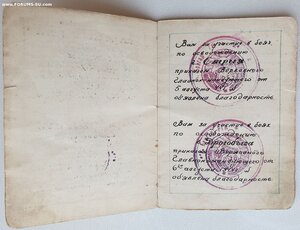 www.FORUMS-SU.com
Вам за участие в боях
по освобождению
г. Стрыя
приказом Верховного
Главнокомандующего от
5 августа
объявлена благодарность
Вам за участие в боях
по освобождению
г. Дрогобыча
приказом Верховного
Главнокомандующего от
6го августа
объявлена благодарность